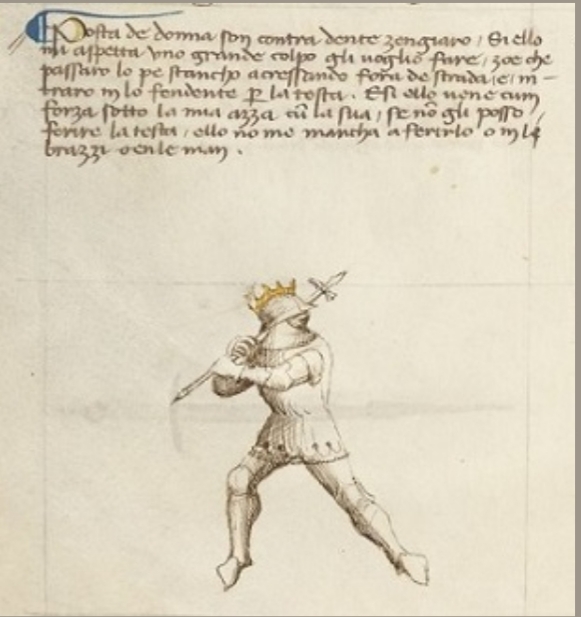 Posta de donna son contra dente zengiaro / Si ello
mi aspetta uno grande colpo gli voglio fare / zoe che
passaro lo pe stancho acressando fora de strada / e in-
traro in lo fendente p la testa . E si ello vene cum
forza sotto la mia azza cū la sua / se nō gli posso
ferire la testa / ello nō me mancha a ferirlo o in le
brazzi o en le man .